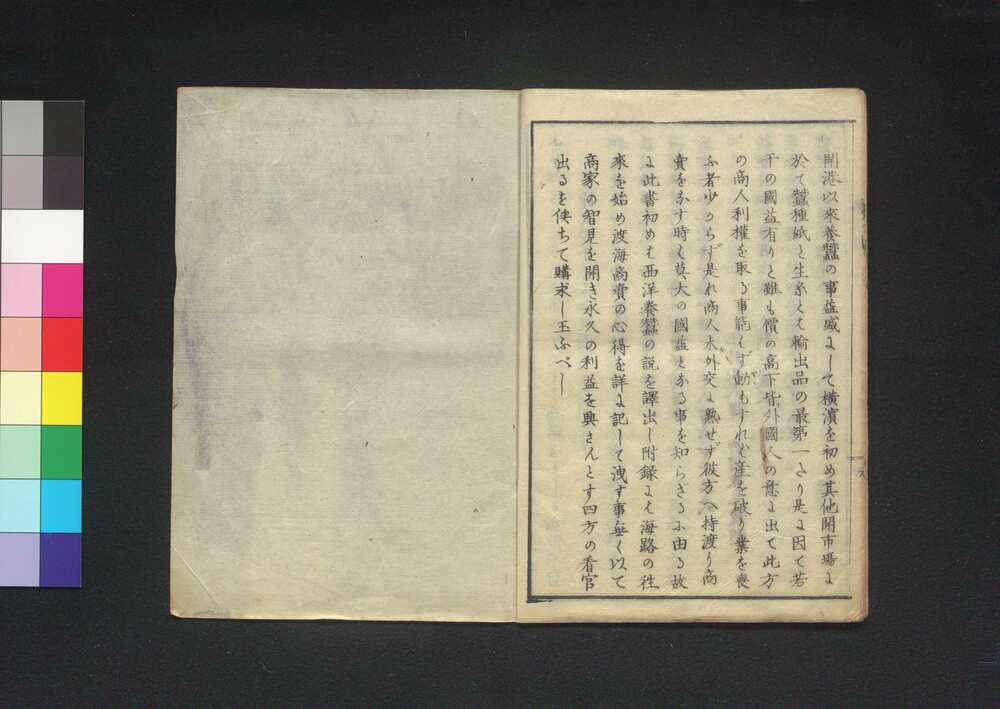 開港以來養蠶の事益盛にして橫濱を初め其他開市場に
於て蠶種紙と生糸とは輸出品の最第一たり是に因て若
干の國益有りと雖も價の高下皆外國人の意に出て此方
の商人利權を取る事能はず動もすれば産を破り業を喪
ふ者少からず是れ商人未外交に熟せず彼方へ持渡り商
賣をなす時は莫大の國益となる事を知らざるに由る故
に此書初めは西洋養蠶の説を譯出し附録には海路の往
來を始め渡海商賣の心得を詳に記して洩す事無く以て
商家の智見を開き永久の利益を興さんとす四方の看官
出るを俟ちて購求し玉ふべし